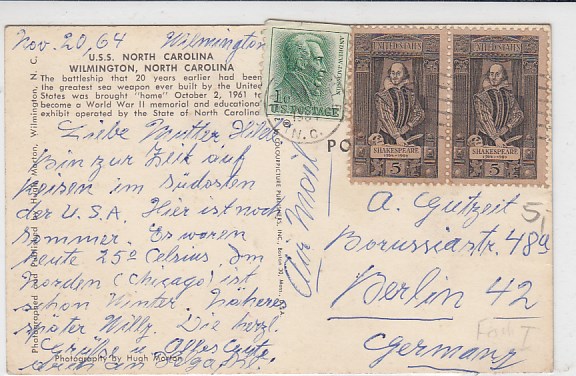 Nov. 20, 64 Wilmington
U.S.S. NORTH CAROLINA
WILMINGTON, NORTH CAROLINA
The battleship that 20 years earlier had been
the greatest sea weapon ever built by the United
States was brought "home" October 2, 1961 to
become a World War II memorial and educational
exhibit operated by the State of North Carolina
Liebe Mutter Hilde
Bin zur Zeit auf
Reisen im Südosten
der U.S.A. Hier ist noch
Sommer. Es waren
heute 25° Celsius. Im
Norden (Chicago) ist
schon Winter. Näheres
später Willy. Die herzl.
Grüße u. Alles Gute
Photography by Hugh Morton
Photographed and Published by Hugh Morton, Wilmington, N. C.
COLOURPICTURE PUBLISHERS, INC., Boston 30, Mass., U.S.A.
Air Mail
ANDREW JACKSON
1¢
U.S. POSTAGE
N.C.
UNITED STATES
SHAKESPEARE
1564-1964
5¢
UNITED STATES
SHAKESPEARE
1564-1964
5¢
PO
A. Gutzeit
Borussiastr. 48a
Berlin 42
Germany
5